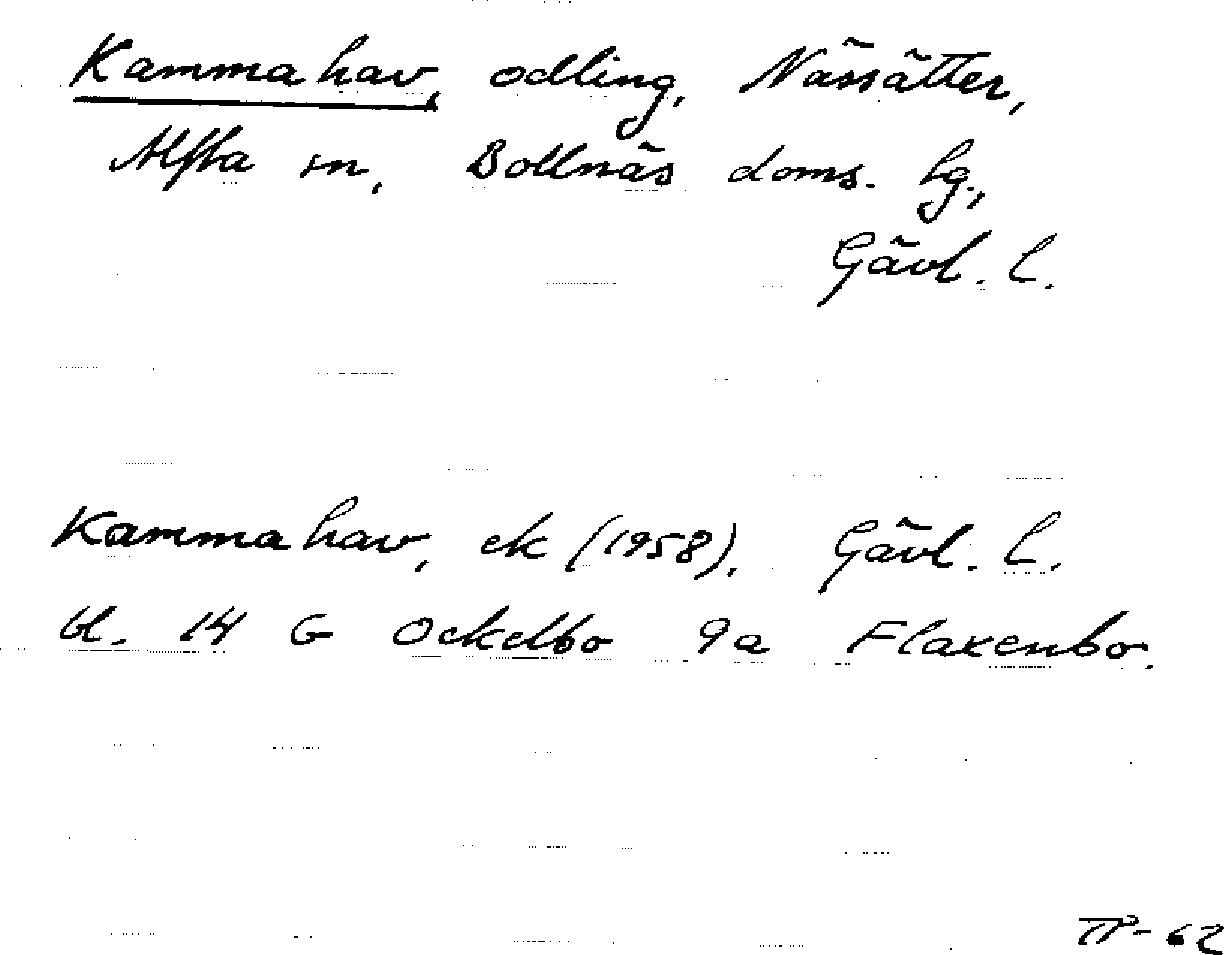 Kammahav, odling, Nässätter,
Alfta sn, Bollnäs doms. hg.,
Gävl. l.
Kammahav, ek (1958), Gävl. l.
bl. 14 G Ockelbo 9a Flaxenbo.
TP-62